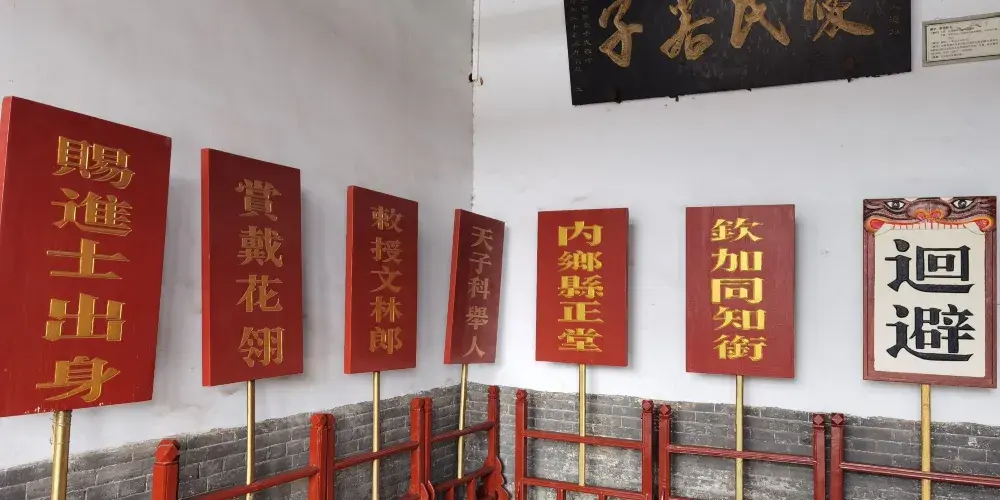 愛民若子
賜進士出身
賞戴花翎
敕授文林郎
天子科舉人
内鄉縣正堂
欽加同知銜
迴避